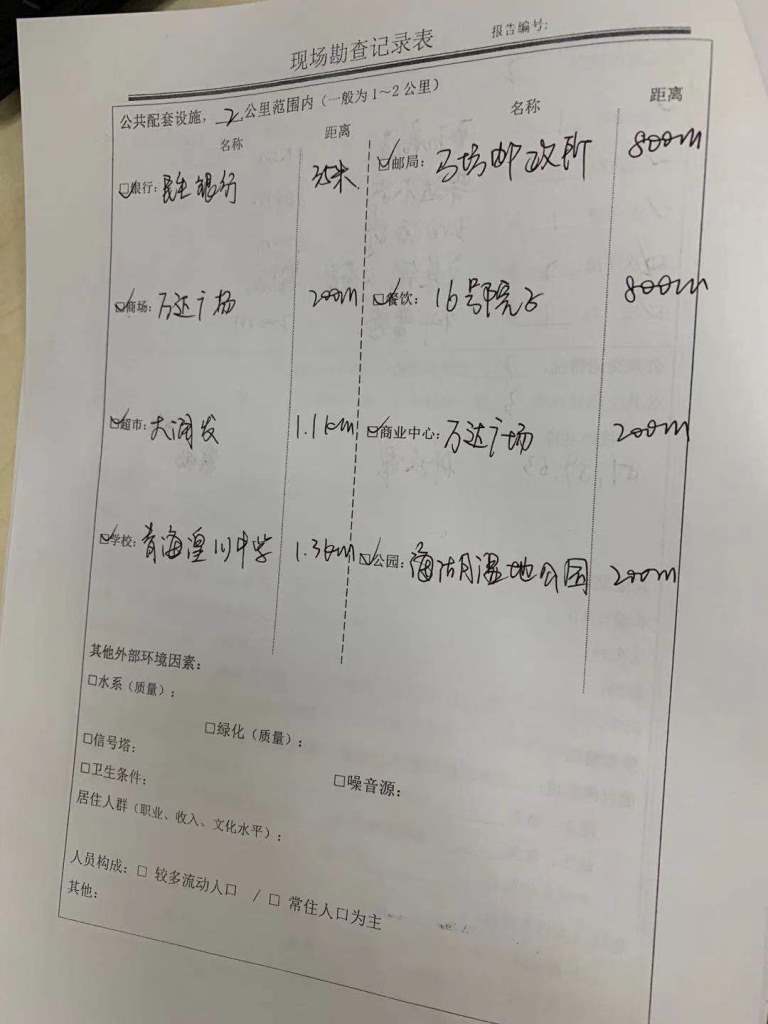 现场勘查记录表
报告编号:
公共配套设施，2公里范围内（一般为1~2公里）
名称 距离 名称 距离
☑银行: 民生银行 35米 ☑邮局: 马坊邮政所 800m
☑商场: 万达广场 200m ☑餐饮: 16号院子 800m
☑超市: 大润发 1.1km ☑商业中心: 万达广场 200m
☑学校: 青海湟川中学 1.3km ☑公园: 海湖湿地公园 200m
其他外部环境因素:
□水系（质量）:
□绿化（质量）:
□信号塔:
□噪音源:
□卫生条件:
居住人群（职业、收入、文化水平）:
人员构成: □ 较多流动人口 / □ 常住人口为主
其他: